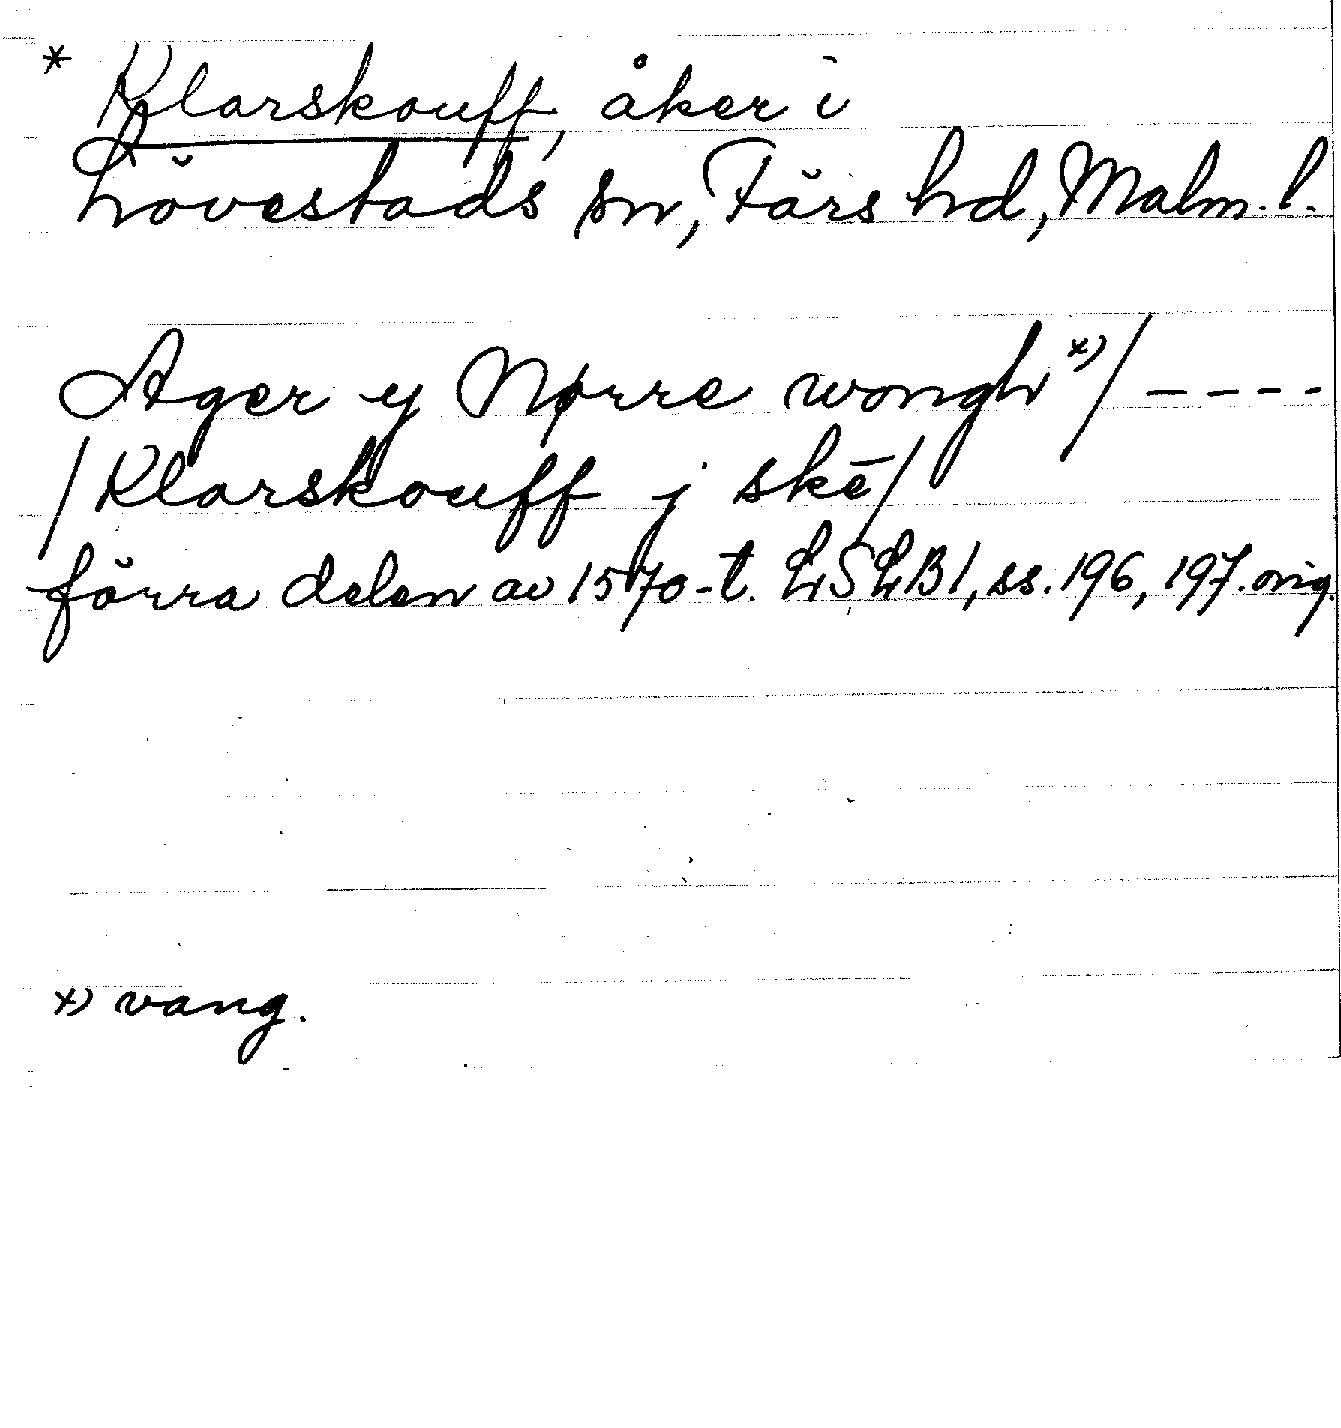 * Klarskouff, åker i
Lövestads sn, Färs hd, Malm. l.
Ager y Nørre wongh *) / ----
/ Klarskouff j skē /
förra delen av 1570-t. LSLB1, ss. 196, 197. orig.
*) vang.